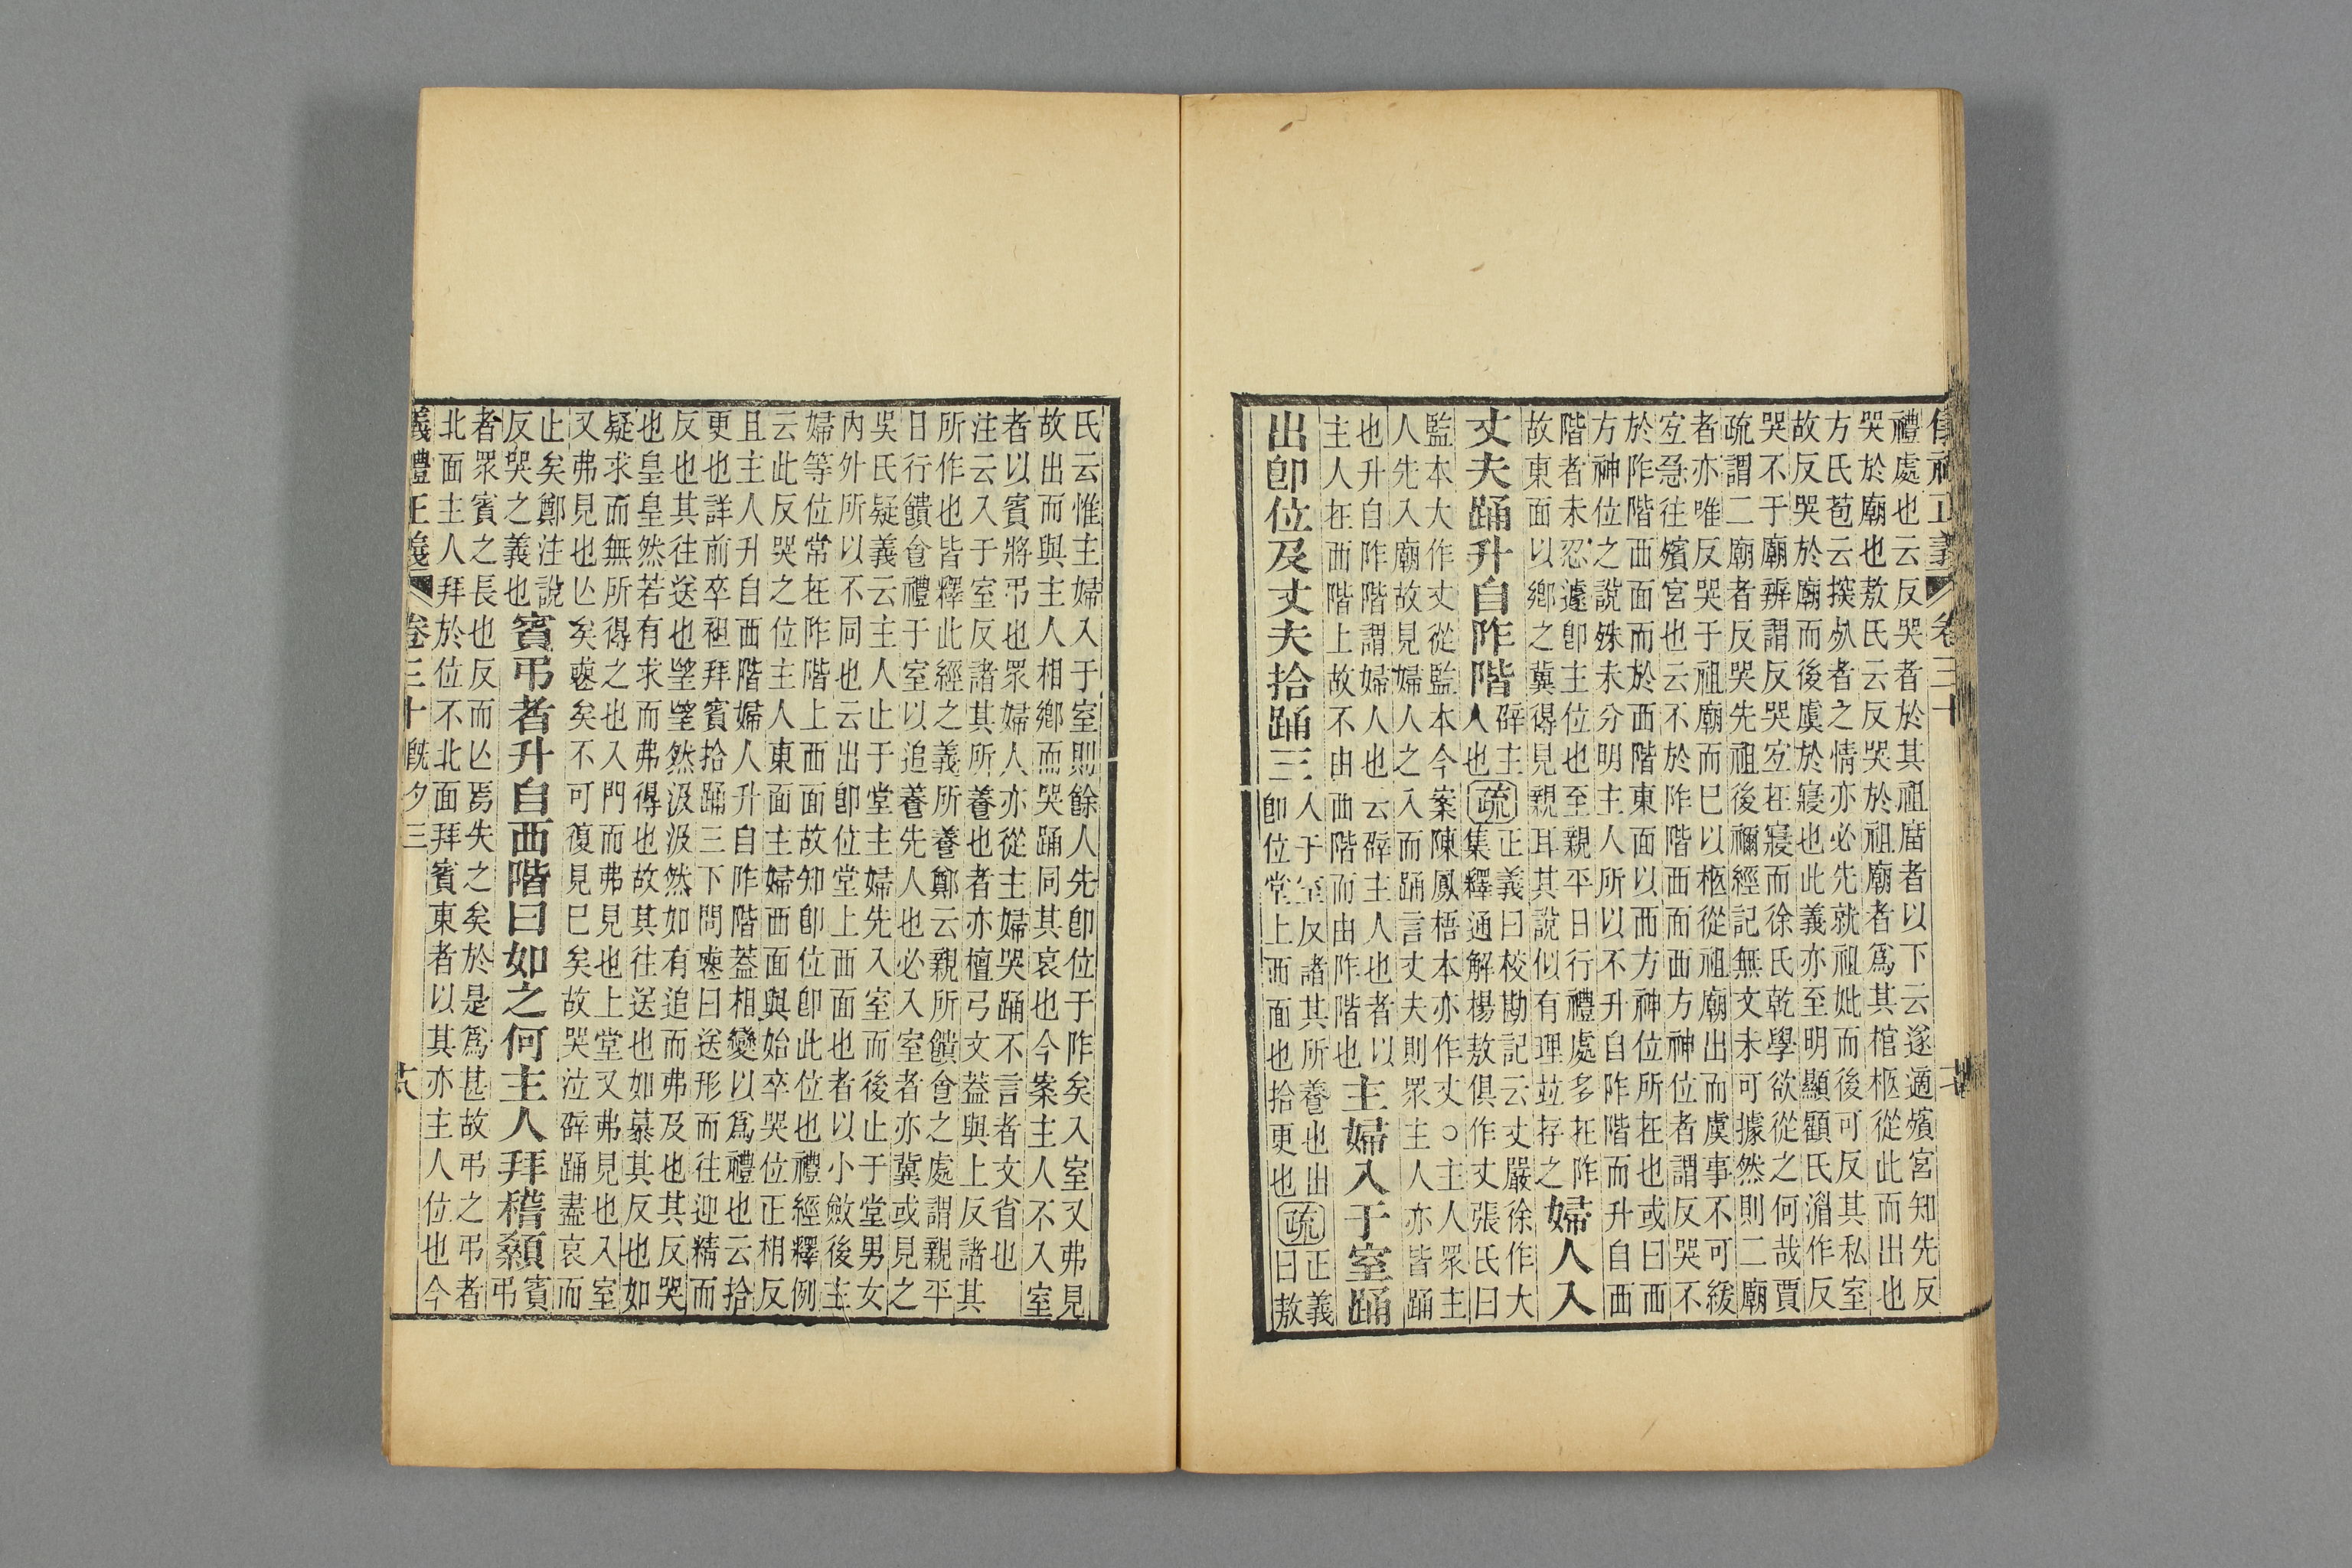 儀禮正義 卷三十
禮處也云反哭者於其祖庿者以下云遂適殯宮知先反
哭於廟也敖氏云反哭於祖廟者爲其棺柩從此而出也
方氏苞云揆厥者之情亦必先就祖妣而後可反其私室
故反哭於廟而後虞於寢也此義亦至明顯顧氏湄作反
哭不于廟辨謂反哭宜在寢而徐氏乾學欲從之何哉賈
疏謂二廟者反哭先祖後禰經記無文未可據然則二廟
者亦唯反哭于祖廟而已以柩從祖廟出而虞事不可緩
宜急往殯宮也云不於阼階西面西方神位者謂反哭不
於阼階西面而於西階東面以西方神位所在也或曰西
方神位之說殊未分明主人所以不升自阼階而升自西
階者未忍遽卽主位也至親平日行禮處多在阼
故東面以鄉之冀得見親耳其說似有理並存之
婦人入
丈夫踊升自阼階
辟主
人也
疏
正義曰校勘記云丈嚴徐作大
集釋通解楊敖俱作丈張氏曰
監本大作丈從監本今案陳鳳梧本亦作丈○主人眾主
人先入廟故見婦人之入而踊言丈夫則眾主人亦皆踊
也升自阼階謂婦人也云辟主人也者以
主人在西階上故不由西階而由阼階也
主婦入于室踊
出卽位及丈夫拾踊三
入于室反諸其所養也出
卽位堂上西面也拾更也
疏
正義
曰敖
氏云惟主婦入于室則餘人先卽位于阼矣入室又弗見
故出而與主人相鄉而哭踊同其哀也今案主人不入室
者以賓將弔也眾婦人亦從主婦哭踊不言者文省也
注云入于室反諸其所養也者亦檀弓文蓋與上反諸其
所作也皆釋此經之義所養鄭云親所饋食之處謂親平
日行饋食禮于室以追養先人也必入室者亦冀或見之
吳氏疑義云主人止于堂主婦先入室而後止于堂男女
內外所以不同也云出卽位堂上西面也者以小斂後主
婦等位常在阼階上西面故知卽位卽此位也禮經釋例
云此反哭之位主人東面主婦西面與始卒哭位正相反
且主人升自西階婦人升自阼階蓋相變以爲禮也云拾
更也詳前卒袒拜賓拾踊三下問喪曰送形而往迎精而
反也其往送也望望然汲汲然如有追而弗及也其反哭
也皇皇然若有求而弗得也故其往送也如慕其反也如
疑求而無所得之也入門而弗見也上堂又弗見也入室
又弗見也亡矣喪矣不可復見已矣故哭泣辟踊盡哀而
止矣鄭注說
反哭之義也
賓弔者升自西階曰如之何主人拜稽顙
賓
弔
者眾賓之長也反而亡焉失之矣於是爲甚故弔之弔者
北面主人拜於位不北面拜賓東者以其亦主人位也今
儀禮正義 卷三十 旣夕三